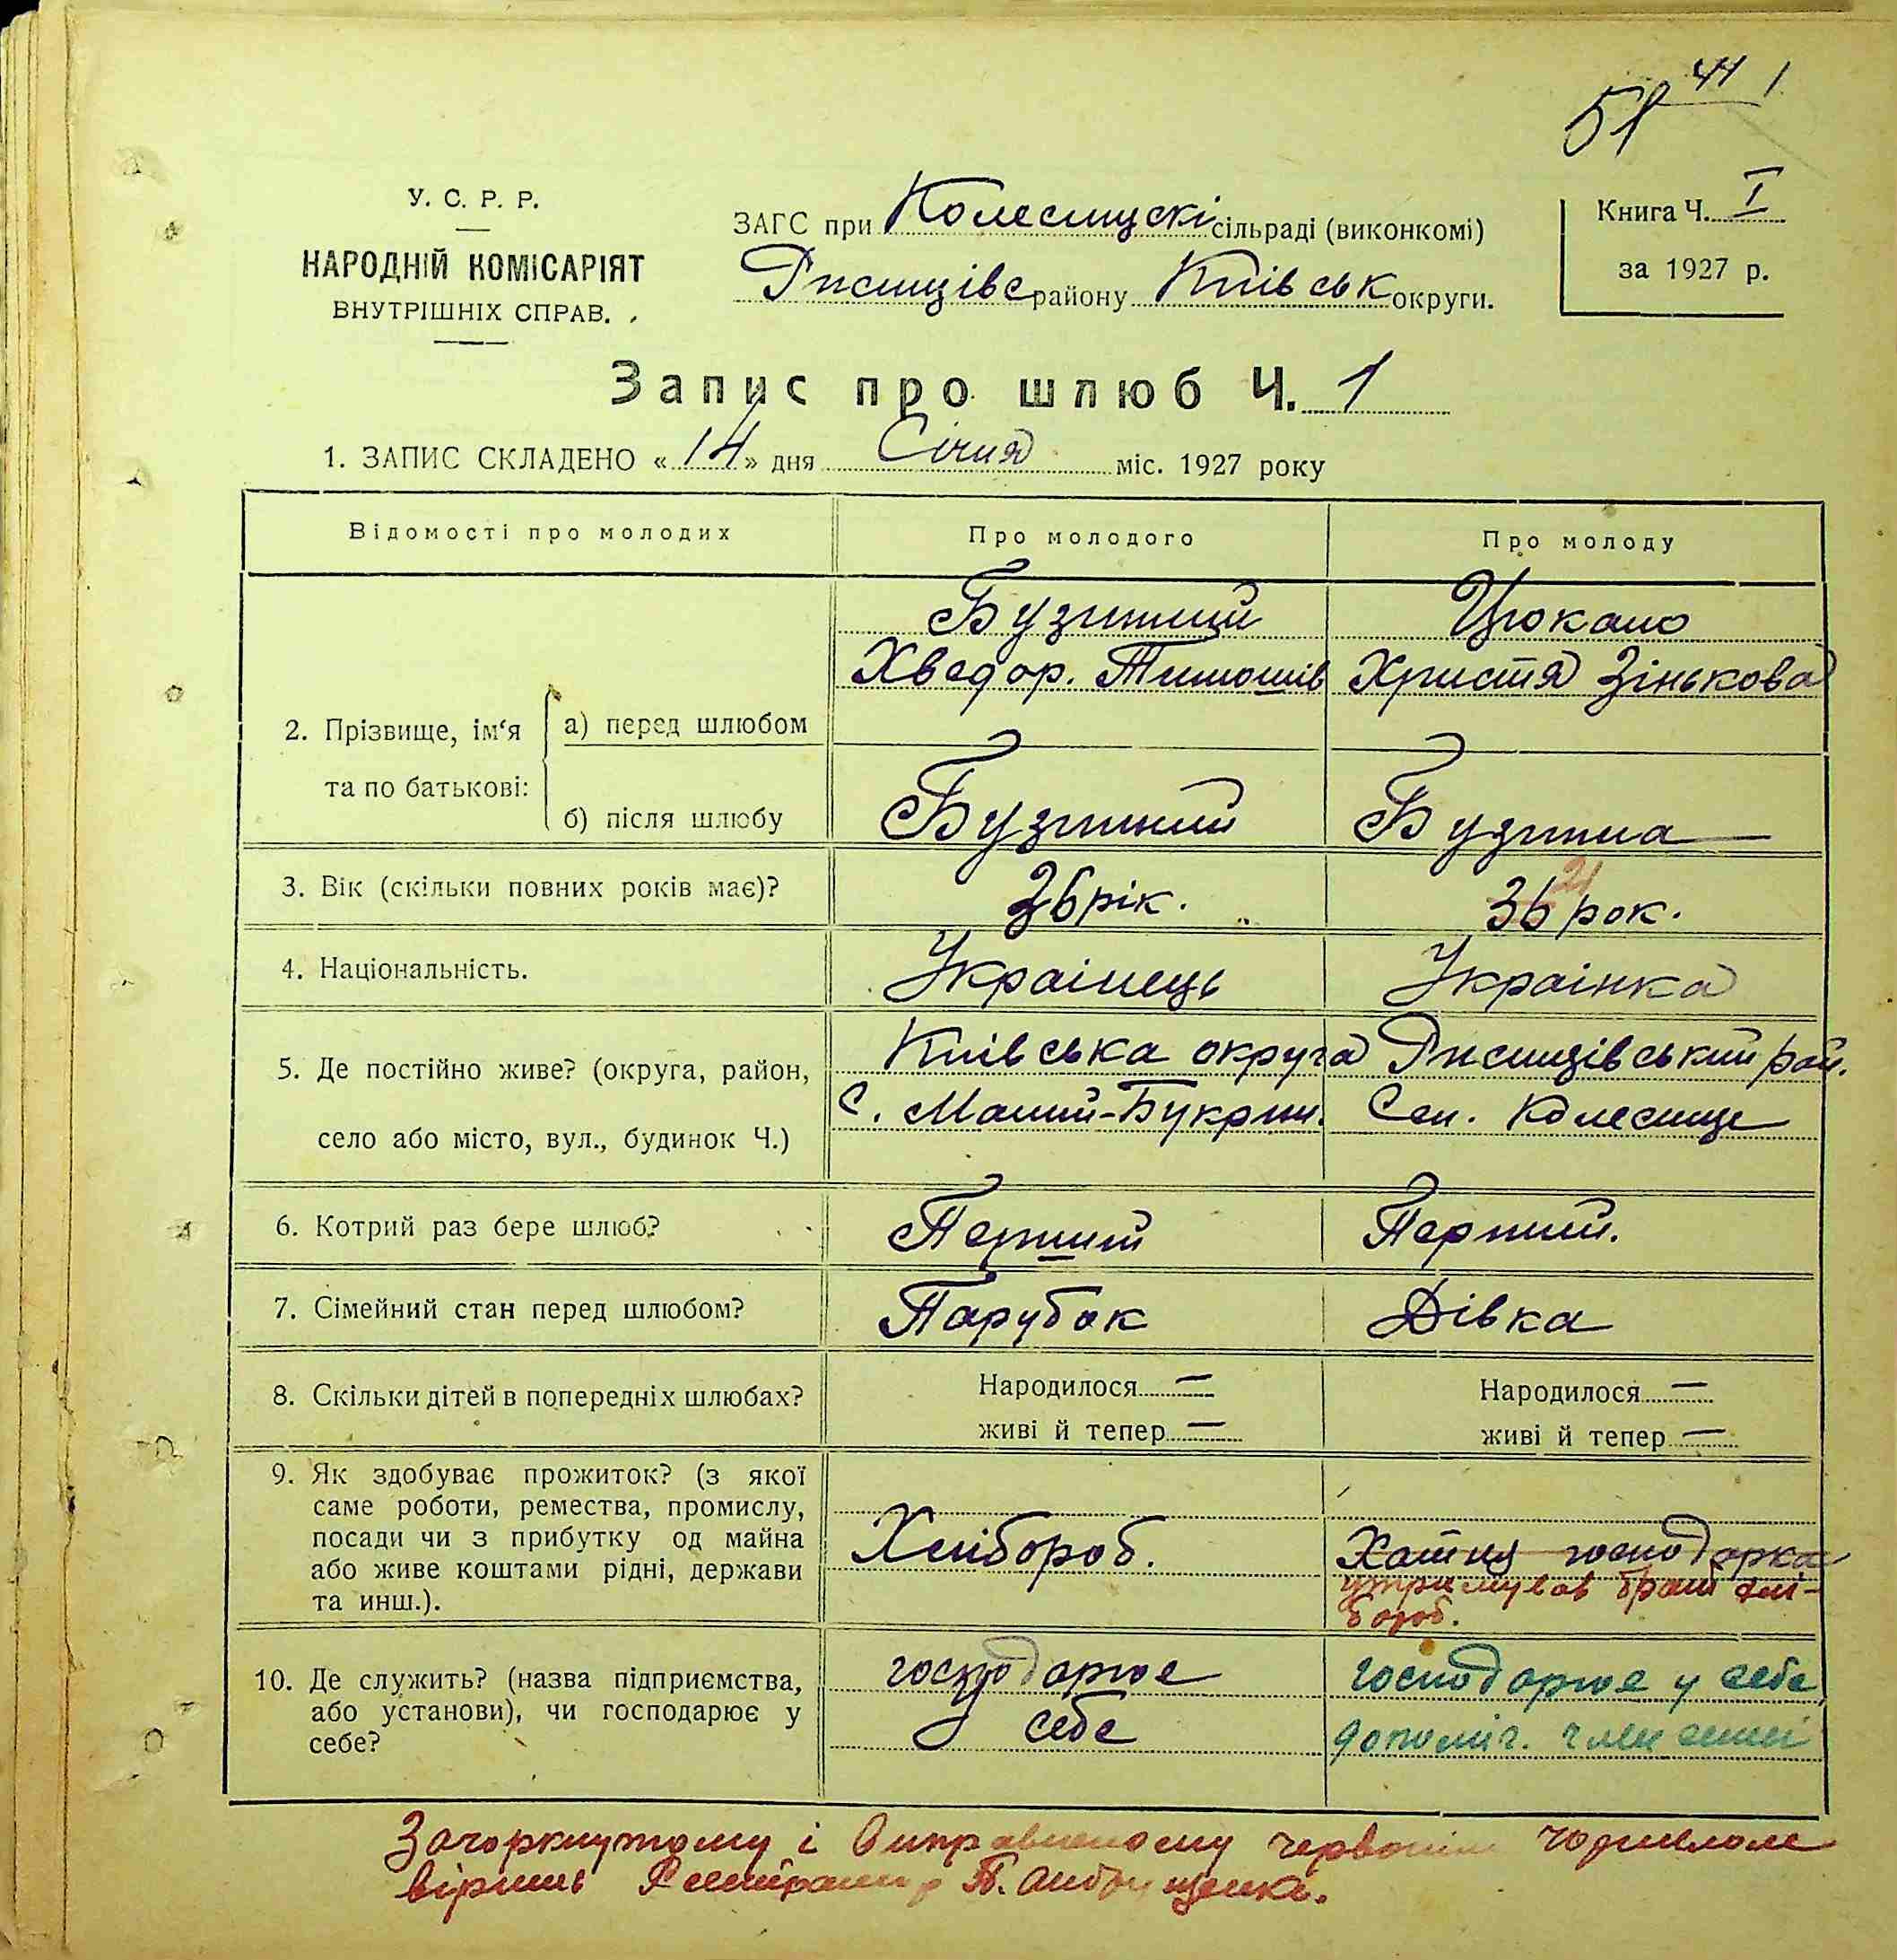 44 1
51
У. С. Р. Р.
НАРОДНІЙ КОМІСАРІЯТ
ВНУТРІШНІХ СПРАВ.
ЗАГС при Колесищскі сільраді (виконкомі)
Ржищівс району Київськ округи.
Книга Ч. I
за 1927 р.
Запис про шлюб Ч. 1
1. ЗАПИС СКЛАДЕНО « 14 » дня Січня міс. 1927 року
Відомості про молодих Про молодого Про молоду
2. Прізвище, ім‘я та по батькові:
а) перед шлюбом
Бузинний
Хведор. Тимошів
Цюкало
Христя Зінькова
б) після шлюбу Бузинний Бузинна
3. Вік (скільки повних років має)? 26 рік. 36 21 рок.
4. Національність. Украінець Украінка
5. Де постійно живе? (округа, район,
село або місто, вул., будинок Ч.)
Київська округа Ржищівський рай.
С. Малий-Букрин. Сел. Колесище
6. Котрий раз бере шлюб? Перший Перший.
7. Сімейний стан перед шлюбом? Парубок Дівка
8. Скільки дітей в попередніх шлюбах?
Народилося — Народилося —
живі й тепер — живі й тепер —
9. Як здобуває прожиток? (з якої
саме роботи, ремества, промислу,
посади чи з прибутку од майна
або живе коштами рідні, держави
та инш.).
Хлібороб.
Хатня господарка
утримував брат хлі-
бороб.
10. Де служить? (назва підприємства,
або установи), чи господарює у
себе?
господарює
себе
господарює у себе
допоміг. член семьі
Зачоркнутому і Виправленому червонім чорнилом
вірить Реєстратор П. Андрущенко.